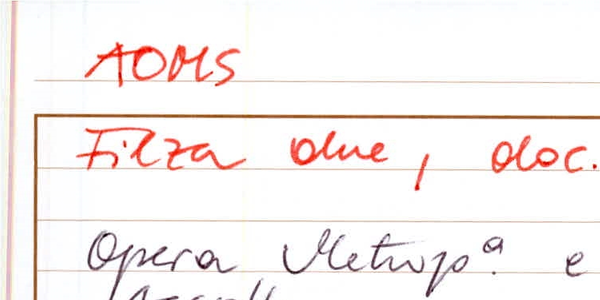 AOMS
Filza due, doc.
Opera Metropª. e